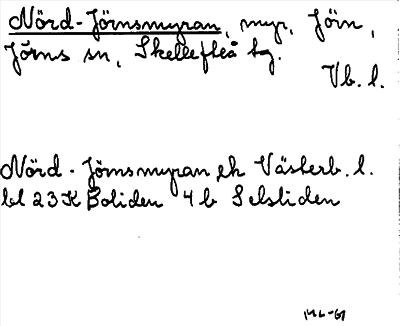 Nörd-Jörnsmyran, myr, Jörn,
Jörns sn, Skellefteå tg.
Vb. l.
Nörd-Jörnsmyran ek Västerb. l.
bl 23 K Boliden 4 b Selsliden